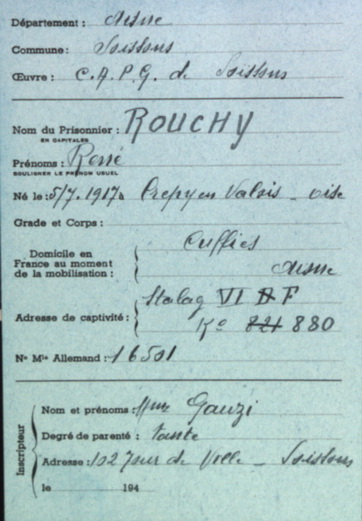 Département: Aisne
Commune: Soissons
Œuvre: C.A.P.G. de Soissons
Nom du Prisonnier: ROUCHY
EN CAPITALES
Prénoms: René
SOULIGNER LE PRÉNOM USUEL
Né le: 5/7. 1917 à Crepy en Valois - Oise
Grade et Corps:
Domicile en Cuffies
France au moment
de la mobilisation: Aisne
Stalag VI F
Adresse de captivité: Kº 880
Nº Mle Allemand: 16501
Inscripteur
Nom et prénoms: Mme Gauzi
Degré de parenté: Tante
Adresse: 102 de Ville - Soissons
le 194